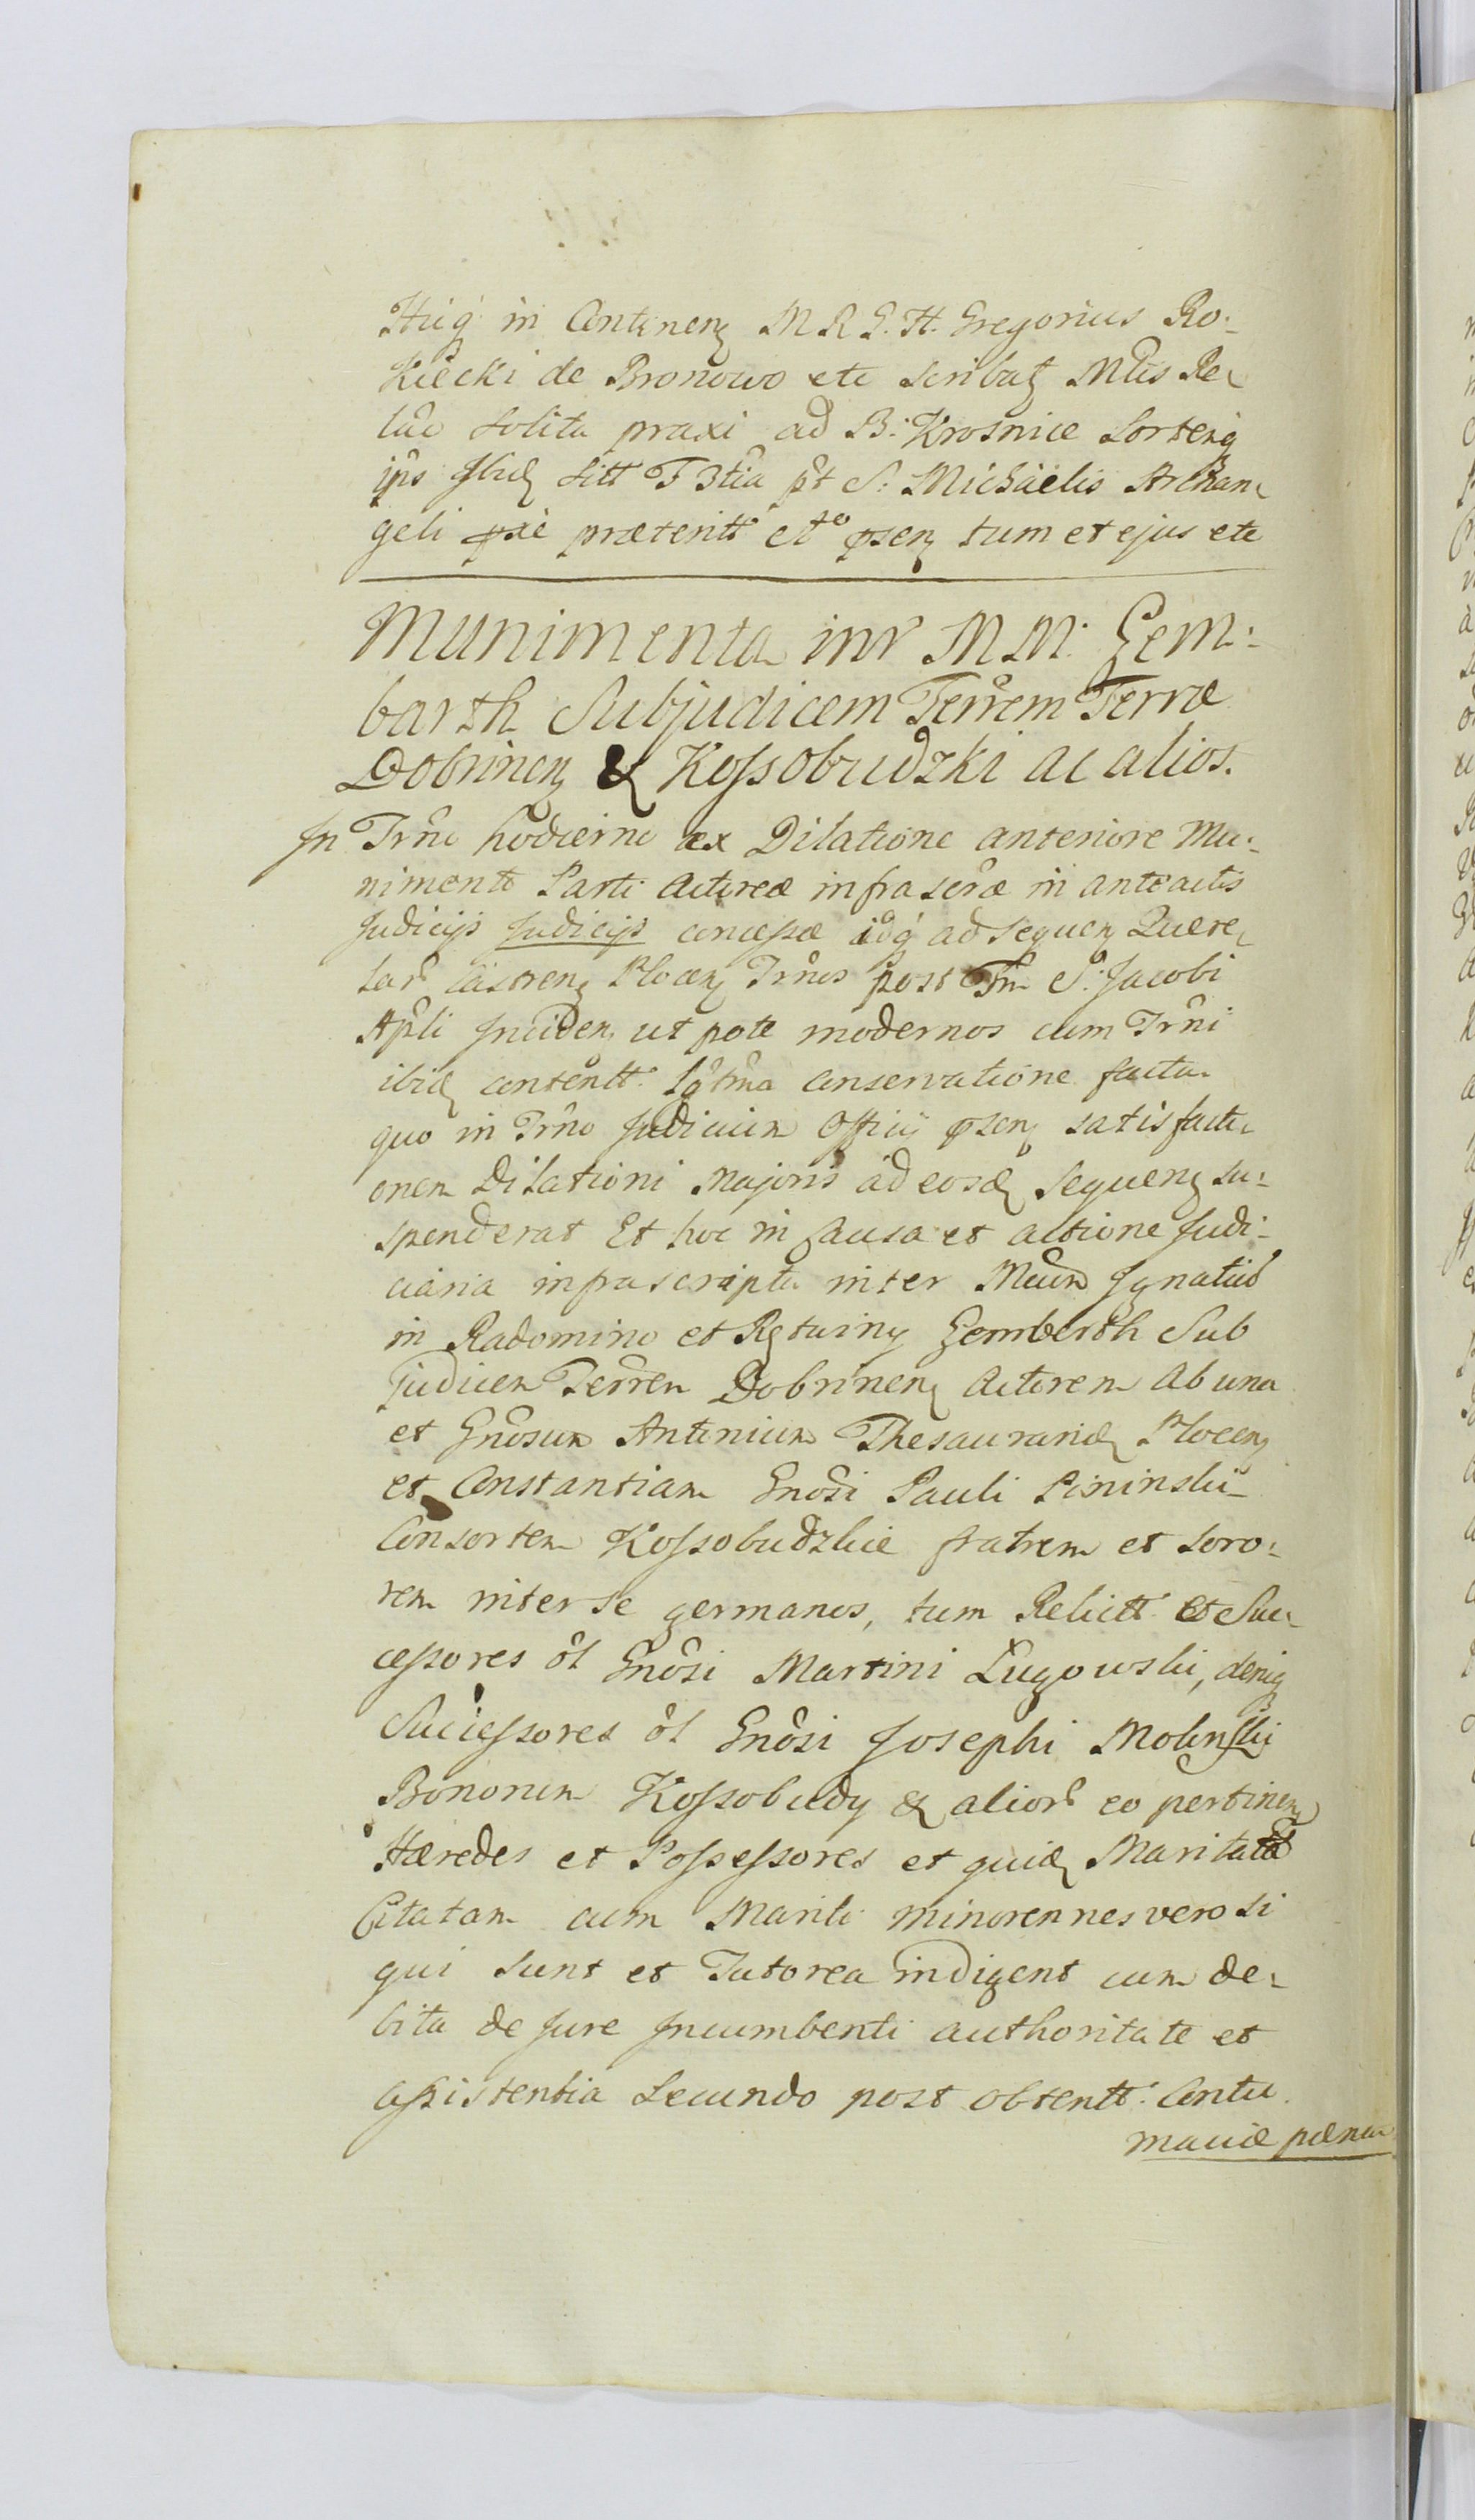 Huig in Continen M R G. H. Gregorius Ro:
kicki de Bronowo etc scribat Mtis Re
lao solita praxi ad B: Krosnice Sorteng
ips Ibid sitt F 3tia pt S: Michaelis Archan
geli pxe praeteritt etc psen tum et ejus etc
Munimenta intr M M: Gem:
barth Subjudicem Terrem Terræ
Dobrinen & Kossobudzki ac alios.
In Trno hodierno ex Dilatione anteriore Mu:
nimento Parti Actoreæ infrascræ in anteactis
Judicijs Judicijs concessæ idq ad sequen Quere
lar Castren Plocen Trnos post Fm S: Jacobi
Apli Inciden ut pote modernos cum Trni
ibid contentt: lgtma conservatione facta
quo in Trno Judicium Officij psen satisfacti
onem Dilationi Majoris ad eosd sequen su:
spenderat Et hoc in causa et actione Judi:
ciaria infrascripta inter Mcum Ignatium
in Radomino et Rętwiny Gembarth Sub
judicem Terrem Dobrinen Actorem Ab una
et Gnosum Antonium Thesaurarid Plocen
et Constantiam Gnosi Pauli Pininski
Consortem Kossobudzkie fratrem et Soro:
rem inter se germanos, tum Relictt: et Suc
cessores ol Gnosi Martini Ługowski, deniq
Successores ol Gnosi Josephi Molinski
Bonorum Kossobudy & alior eo pertinen
Hæredes et Possessores et quid Maritata
Citatam cum Marito minorennes vero si
qui sunt et Tutorea indigent cum de:
bita de jure Incumbenti authoritate et
assistentia Secundo post obtentt: Contu
maciæ pænam